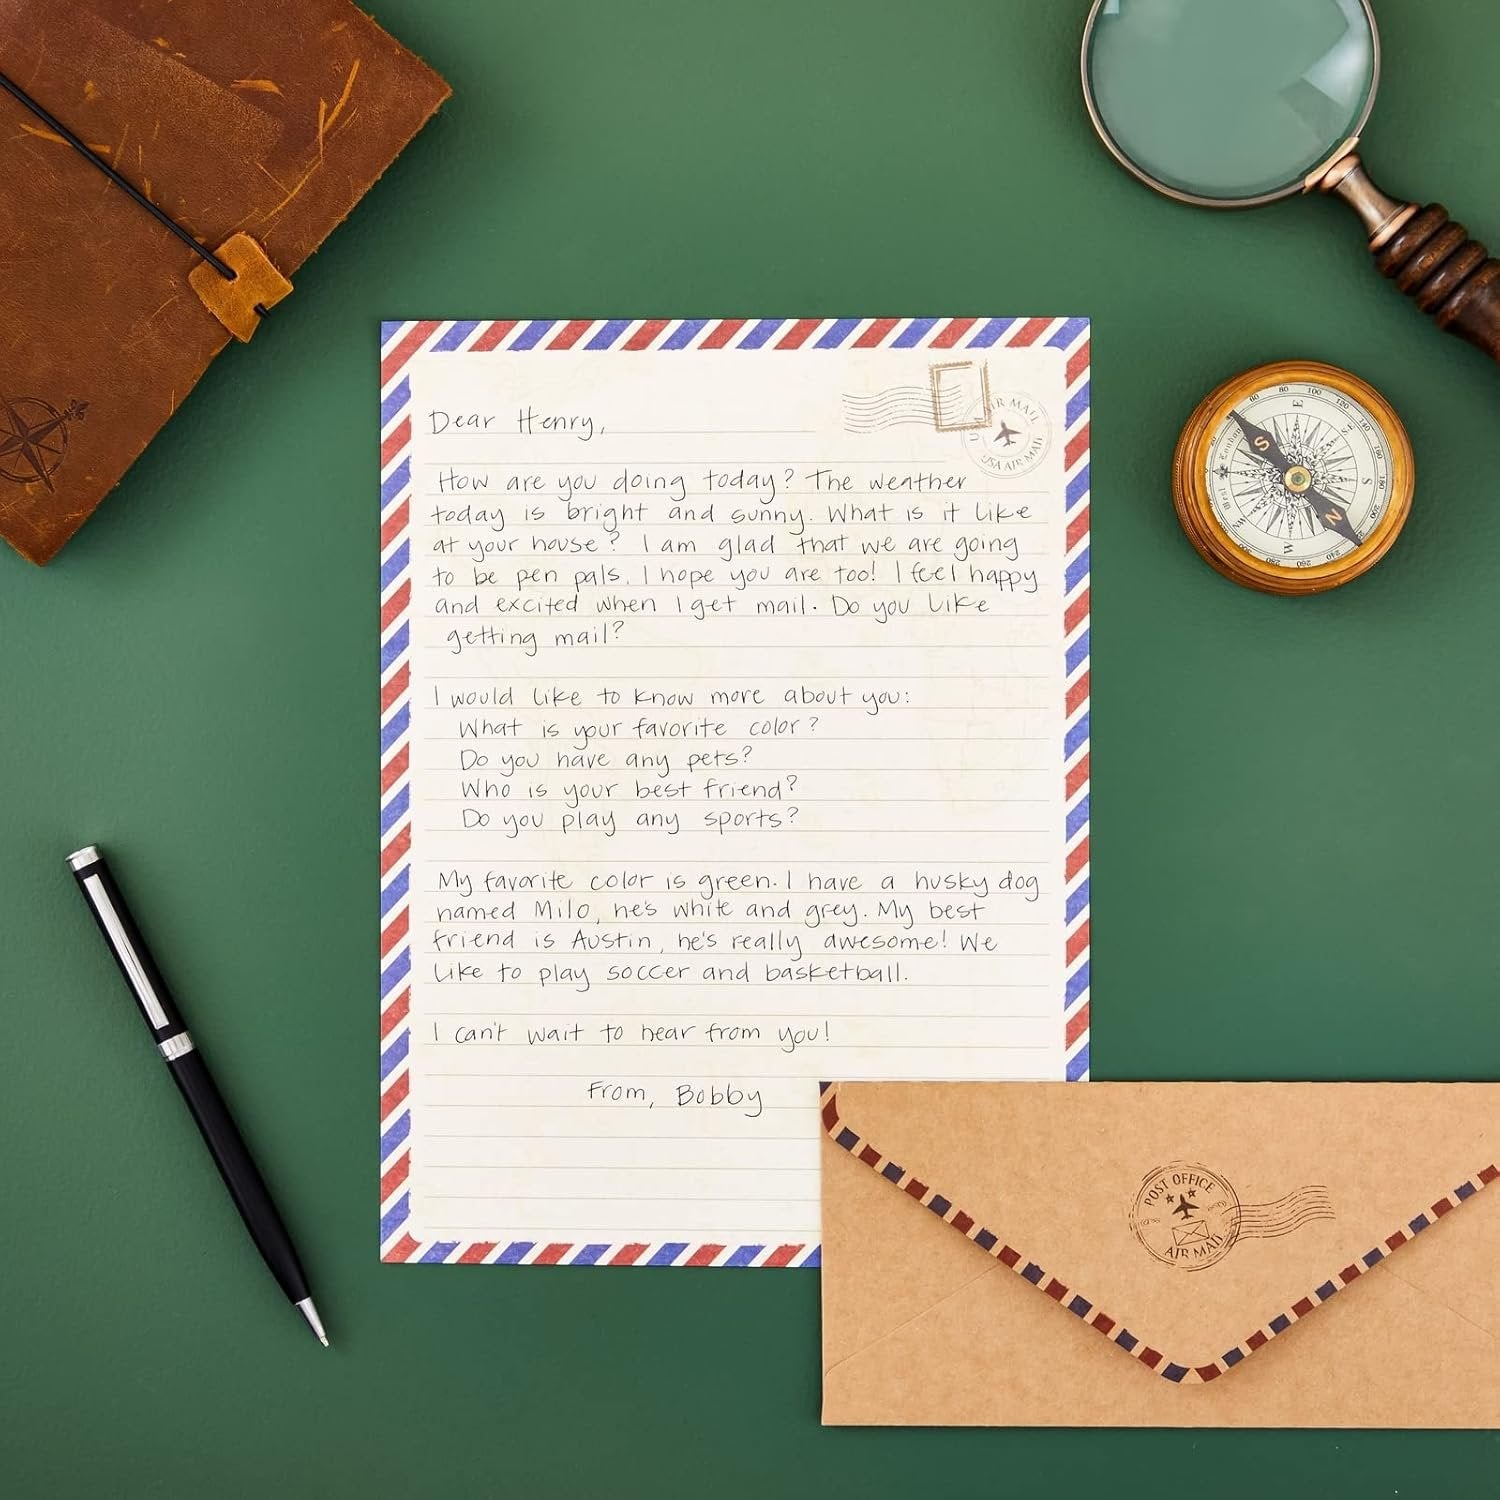 Dear Henry,
How are you doing today? The weather
today is bright and sunny. What is it like
at your house? I am glad that we are going
to be pen pals. I hope you are too! I feel happy
and excited when I get mail. Do you like
getting mail?
I would like to know more about you:
What is your favorite color?
Do you have any pets?
Who is your best friend?
Do you play any sports?
My favorite color is green. I have a husky dog
named Milo, he's white and grey. My best
friend is Austin, he's really awesome! We
like to play soccer and basketball.
I can't wait to hear from you!
From, Bobby
AIR MAIL
USA AIR MAIL
POST OFFICE
AIR MAIL
S
N
E
S
W
NW
60
80
100
120
140
160
180
200
240
260
280